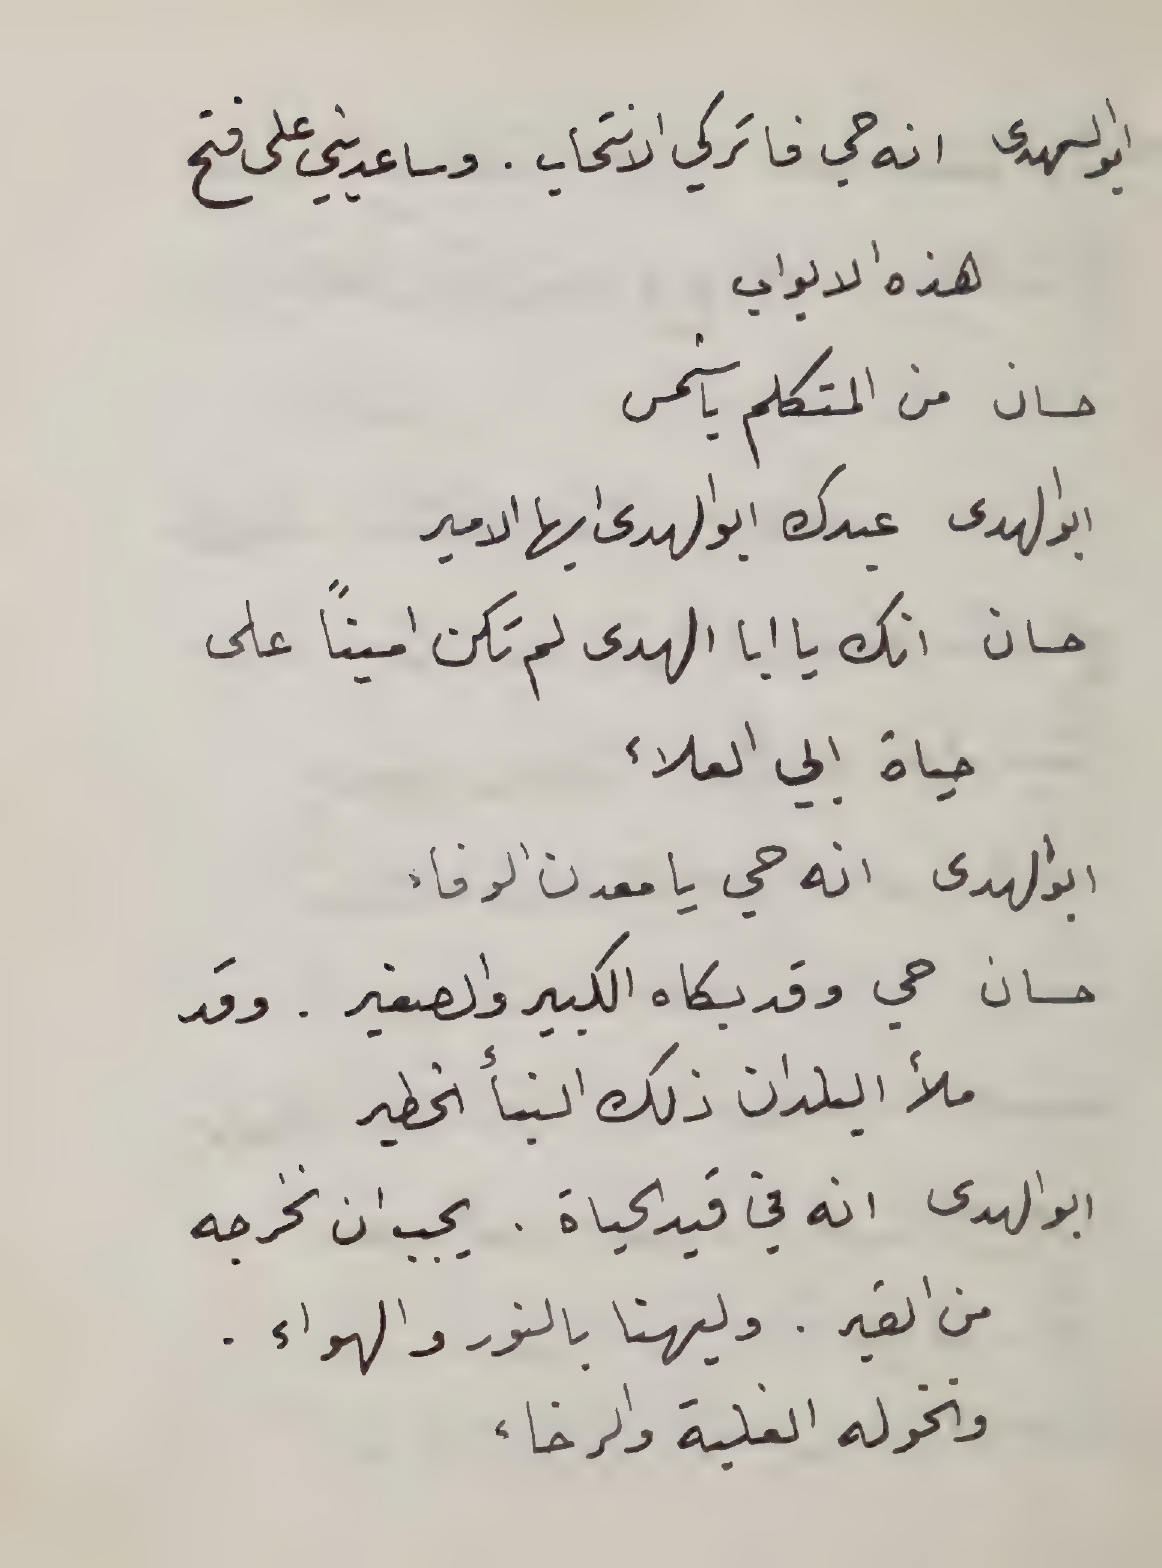 ابو الهدى انه حي فاتركي الانتحاب . وساعديني على فتح
هذه الابواب
حسان من المتكلم يا شمس
ابو الهدى عبدك ابو الهدى ايها الامير
حسان انك يا ابا الهدى لم تكن اميناً على
حياة ابي العلاء
ابو الهدى انه حي يا معدن الوفاء
حسان حي وقد بكاه الكبير والصغير . وقد
ملأ البلدان ذلك النبأ الخطير
ابو الهدى انه في قيد الحياة . يجب ان نخرجه
من القبر . وليهنا بالنور والهواء .
ونخوله الغلبة والرخاء